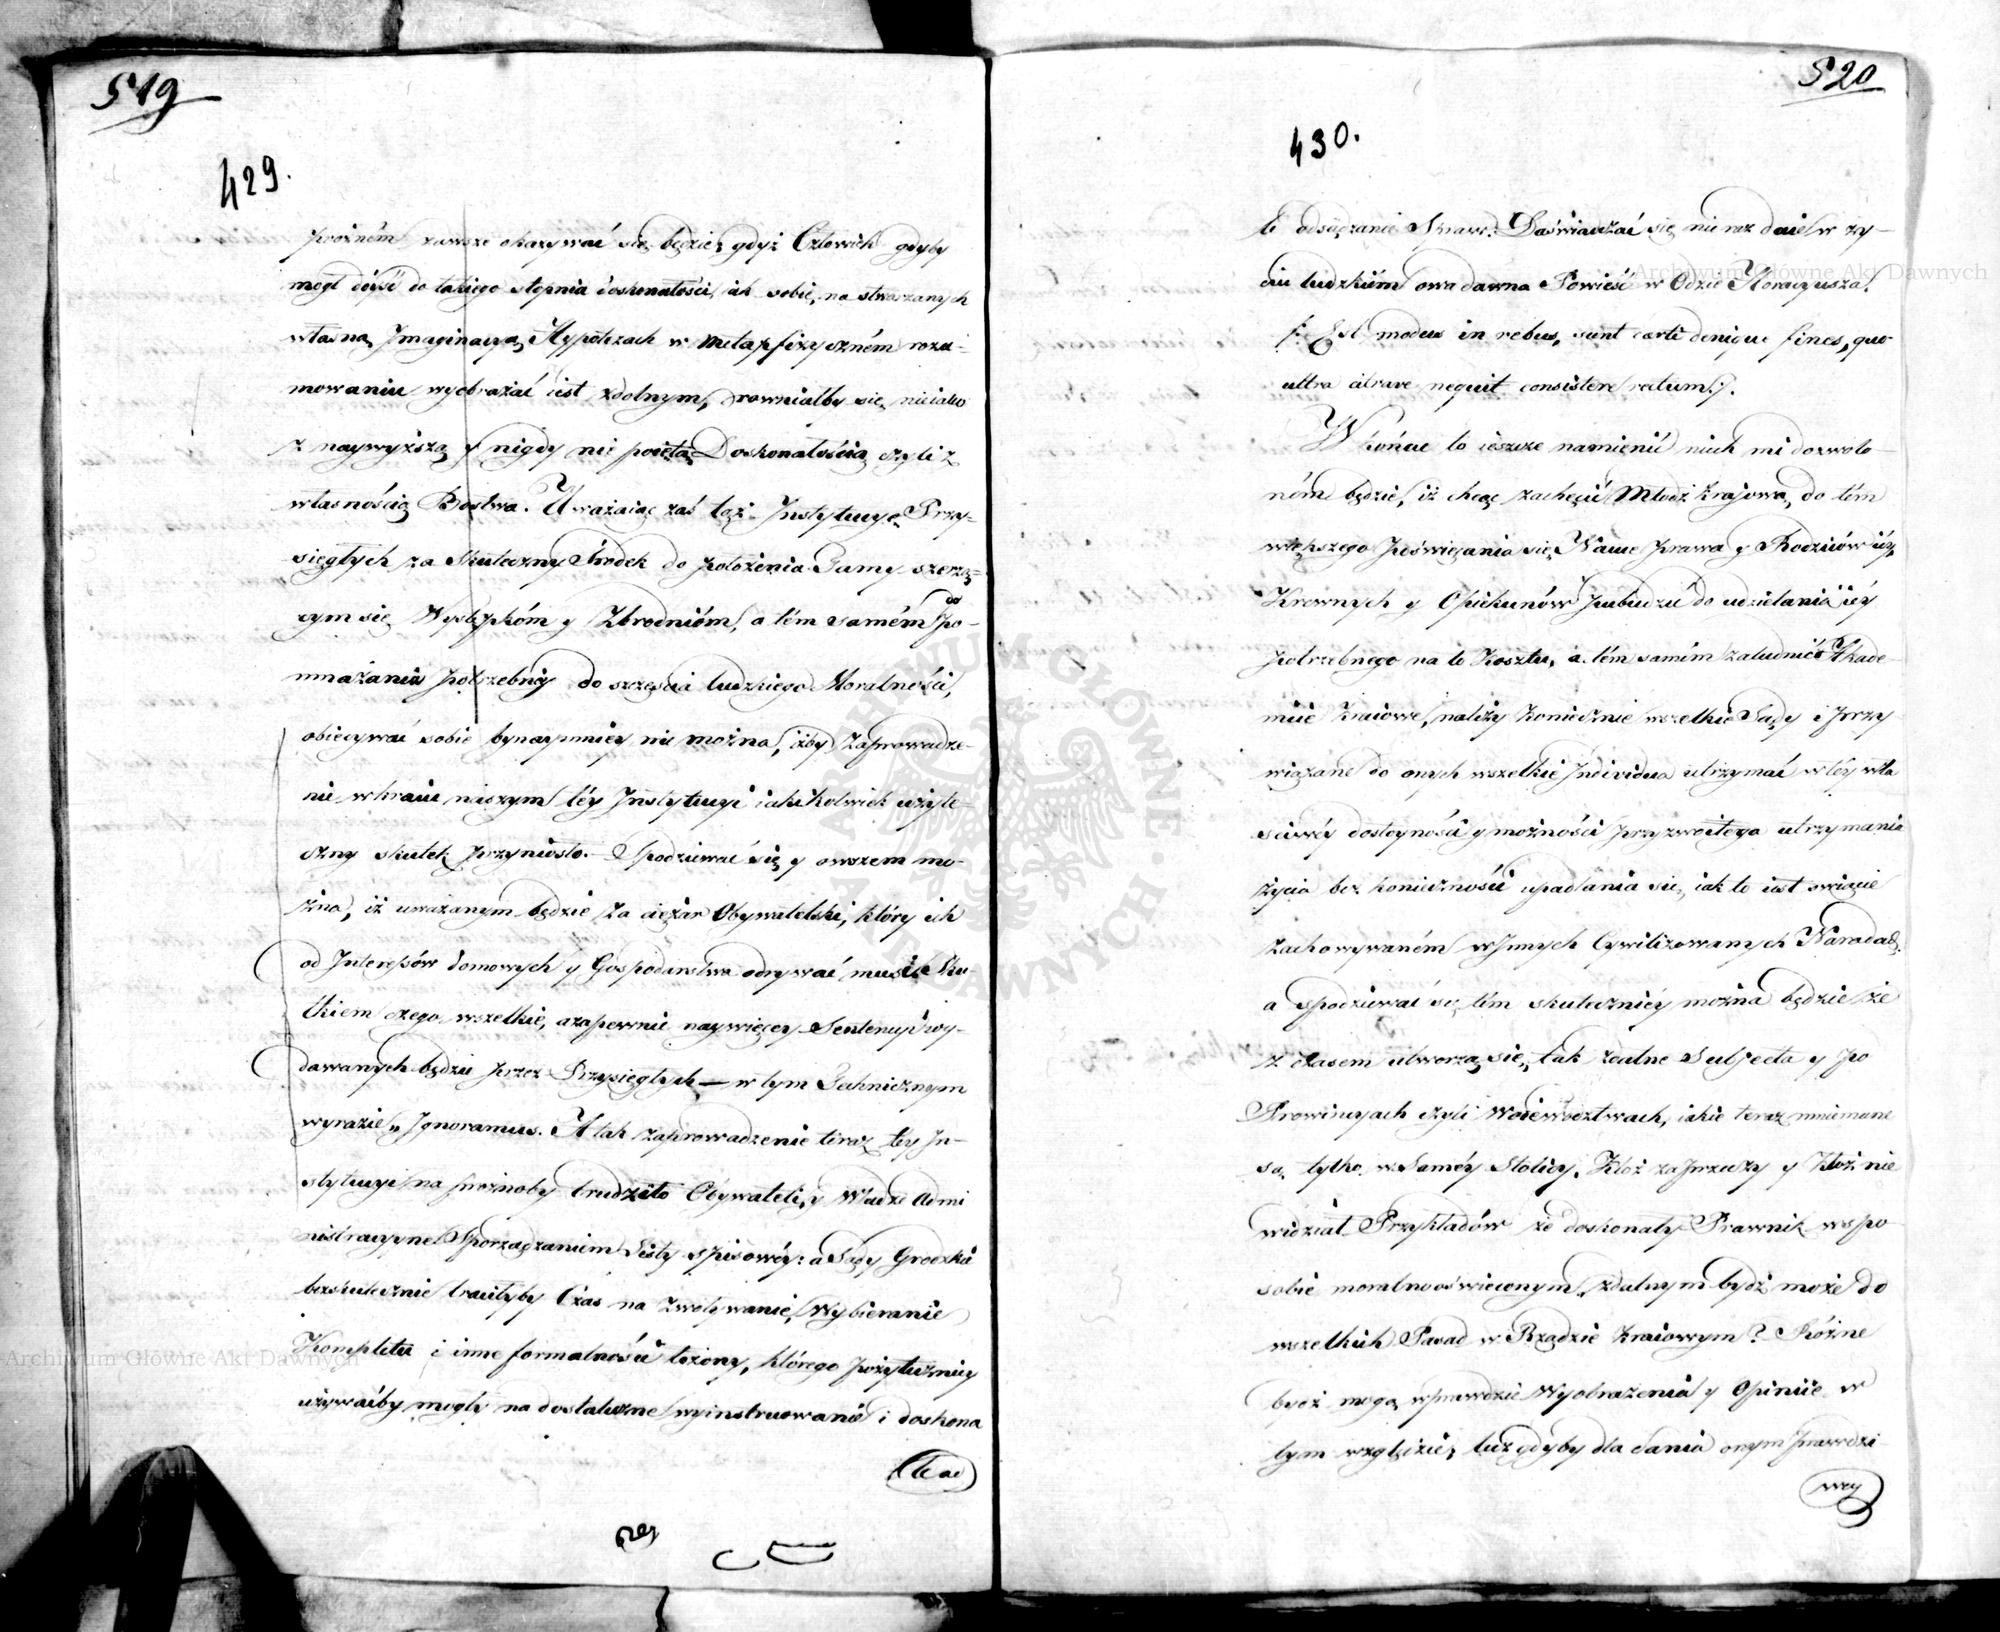 519
429.
prożném zawsze okazywać się będzie, gdyż Człowiek gdyby
mogł dojść do takiego stopnia doskonałości, iak sobie, na stwarzanych
własną Imaginacyą Hypotezach w metapfizyczném rozu-
mowaniu wyobrażać iest zdolnym, zrownałby się nieiako
z naywyższą y nigdy nie poiętą Doskonałością czyli z
własnością Bostwa. Uważaiąc zaś tęż Instytucyę Przy-
sięgłych za skuteczny Środek do położenia Tamy szerzą-
cym się Występkóm y Zbrodnióm, a tém samém do po-
mnażania potrzebnéy do szczęścia ludzkiego Moralności,
obiecywać sobie bynaymniey nie można, iżby zaprowadze-
nie w kraiu naszym téy Instytucyi iakikolwiek użyte-
czny skutek przyniosło. Spodziewać się y owszem mo-
żna, iż uważanym będzie za ciężar Obywatelski, który ich
od Interessów domowych y Gospodarstwa odrywać musi, Sku-
tkiem czego wszelkie, a zapewnie naywięcey Sentencyi wy-
dawanych będzie przez Przysięgłych — w tym Technicznym
wyrazie „ Ignoramus. A tak zaprowadzenie teraz tey In-
stytucyi na prożnoby trudziło Obywateli, y Władze Admi
nistracyyne Sporządzaniem Listy spisowéy: a Sądy Grodzkie
bezskutecznie traciłyby Czas na zwoływanie, Wybieranie
Kompletu i inne formalności łożony, którego pożyteczniey
używaćby mogły na dostateczne wyinstruowanie i doskona
łe od
520
430.
łe odsądzanie Spraw. Doświadczać się nie raz daie w ży-
ciu ludzkiém owa dawna Powieść w Odzie Horacyusza.
/: Est modus in rebus, sunt certi denique fines, quo
ultra citrave nequit consistere rectum:/.
W końcu to ieszcze namienić niech mi dozwolo-
ném będzie, iż chcąc zachęcić Młodź krajową do tém
większego poświęcania się Nauce prawa y Rodziców iéy,
Krewnych y Opiekunów pobudzić do udzielania iéy
potrzebnego na to Kosztu, a tém samém zaludnić Akade-
miie kraiowe, należy koniecznie wszelkie Sądy i przy-
wiązane do onych wszelkie Individua utrzymać w téy wła
sciwéy dostoyności y możności przyzwoitego utrzymania
życia bez konieczności upadlania się, iak to iest święcie
zachowywaném w Innych Cywilizowanych Narodach,
a spodziewać się tém skuteczniéy można będzie że
z czasem utworzą się, tak zdalne Subjecta y po
Prowincyach czyli Woiewództwach, iakie teraz mniemane
są tylko w Saméy Stolicy. Któż zaprzeczy y Któż nie
widział Przykładów że doskonały Prawnik w spo
sobie moralno oświeconym, zdatnym bydź może do
wszelkich Posad w Rządzie kraiowym? Różne
bydź mogą wprawdzie Wyobrażenia y Opiniie w
tym względzie, lecz gdyby dla dania onym prawdzi
wey